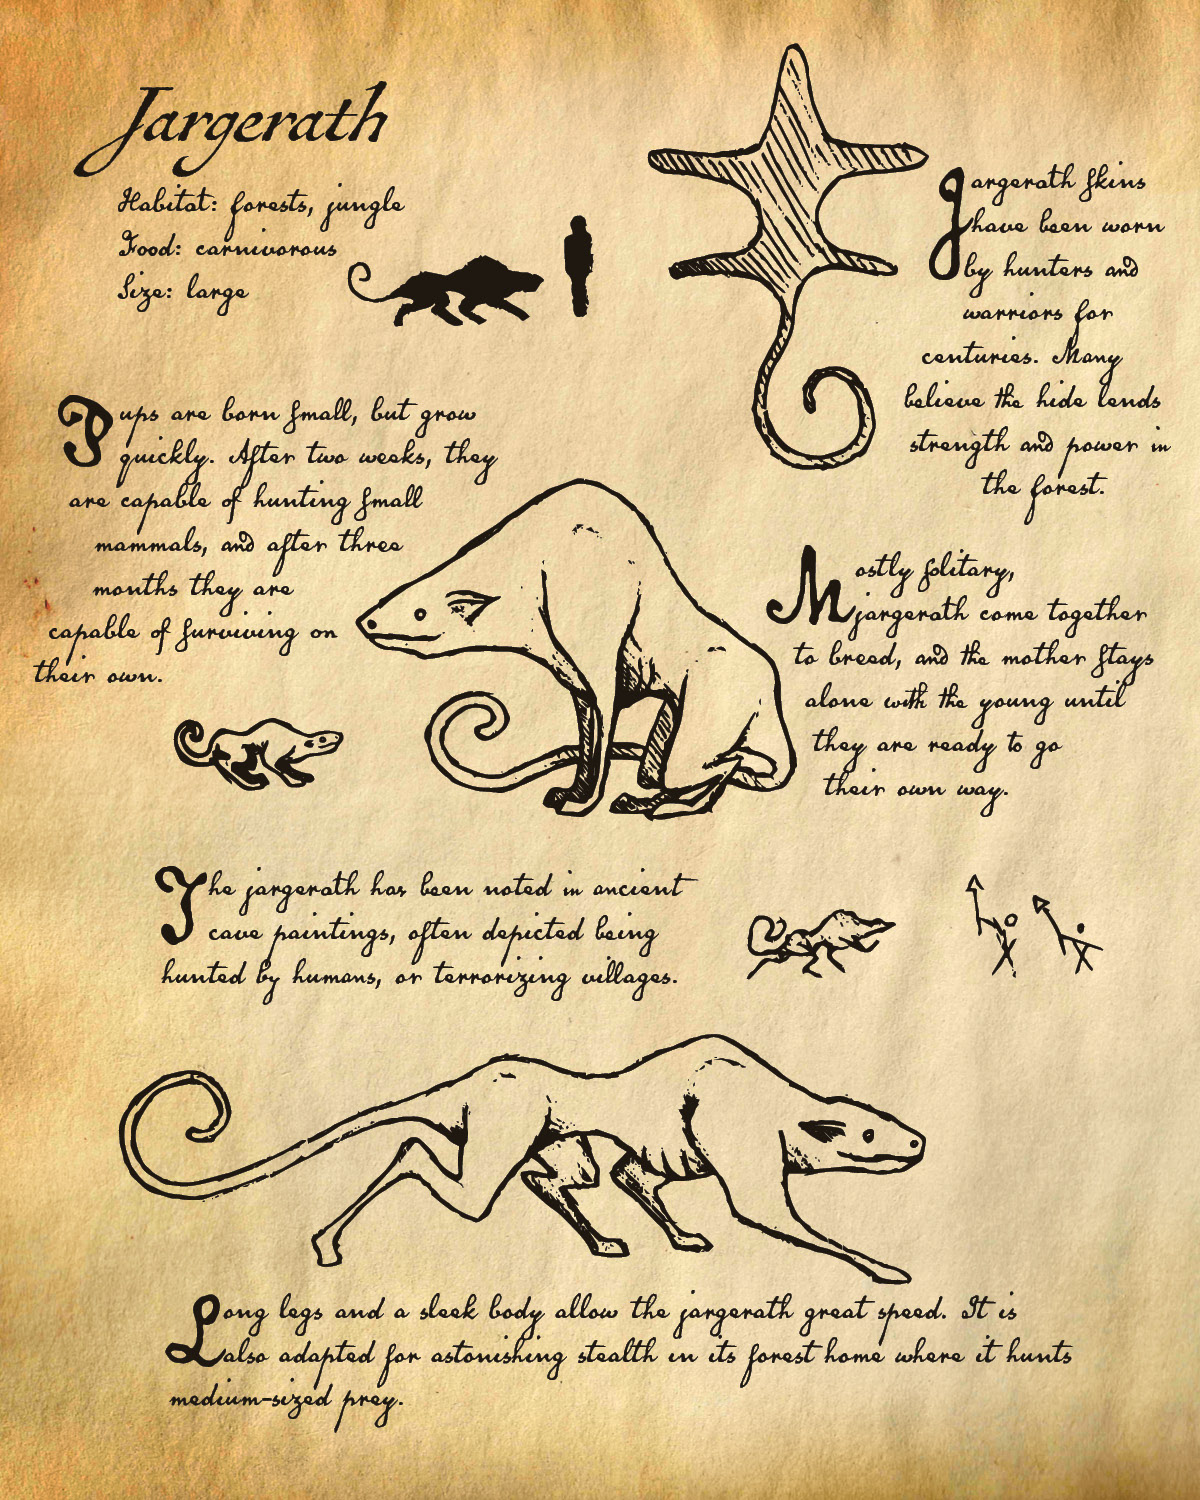 Jargerath
Habitat: forests, jungle
Food: carnivorous
Size: large
Jargerath skins
have been worn
by hunters and
warriors for
centuries. Many
believe the hide lends
strength and power in
the forest.
Pups are born small, but grow
quickly. After two weeks, they
are capable of hunting small
mammals, and after three
months they are
capable of surviving on
their own.
Mostly solitary,
jargerath come together
to breed, and the mother stays
alone with the young until
they are ready to go
their own way.
The jargerath has been noted in ancient
cave paintings, often depicted being
hunted by humans, or terrorizing villages.
Long legs and a sleek body allow the jargerath great speed. It is
also adapted for astonishing stealth in its forest home where it hunts
medium-sized prey.